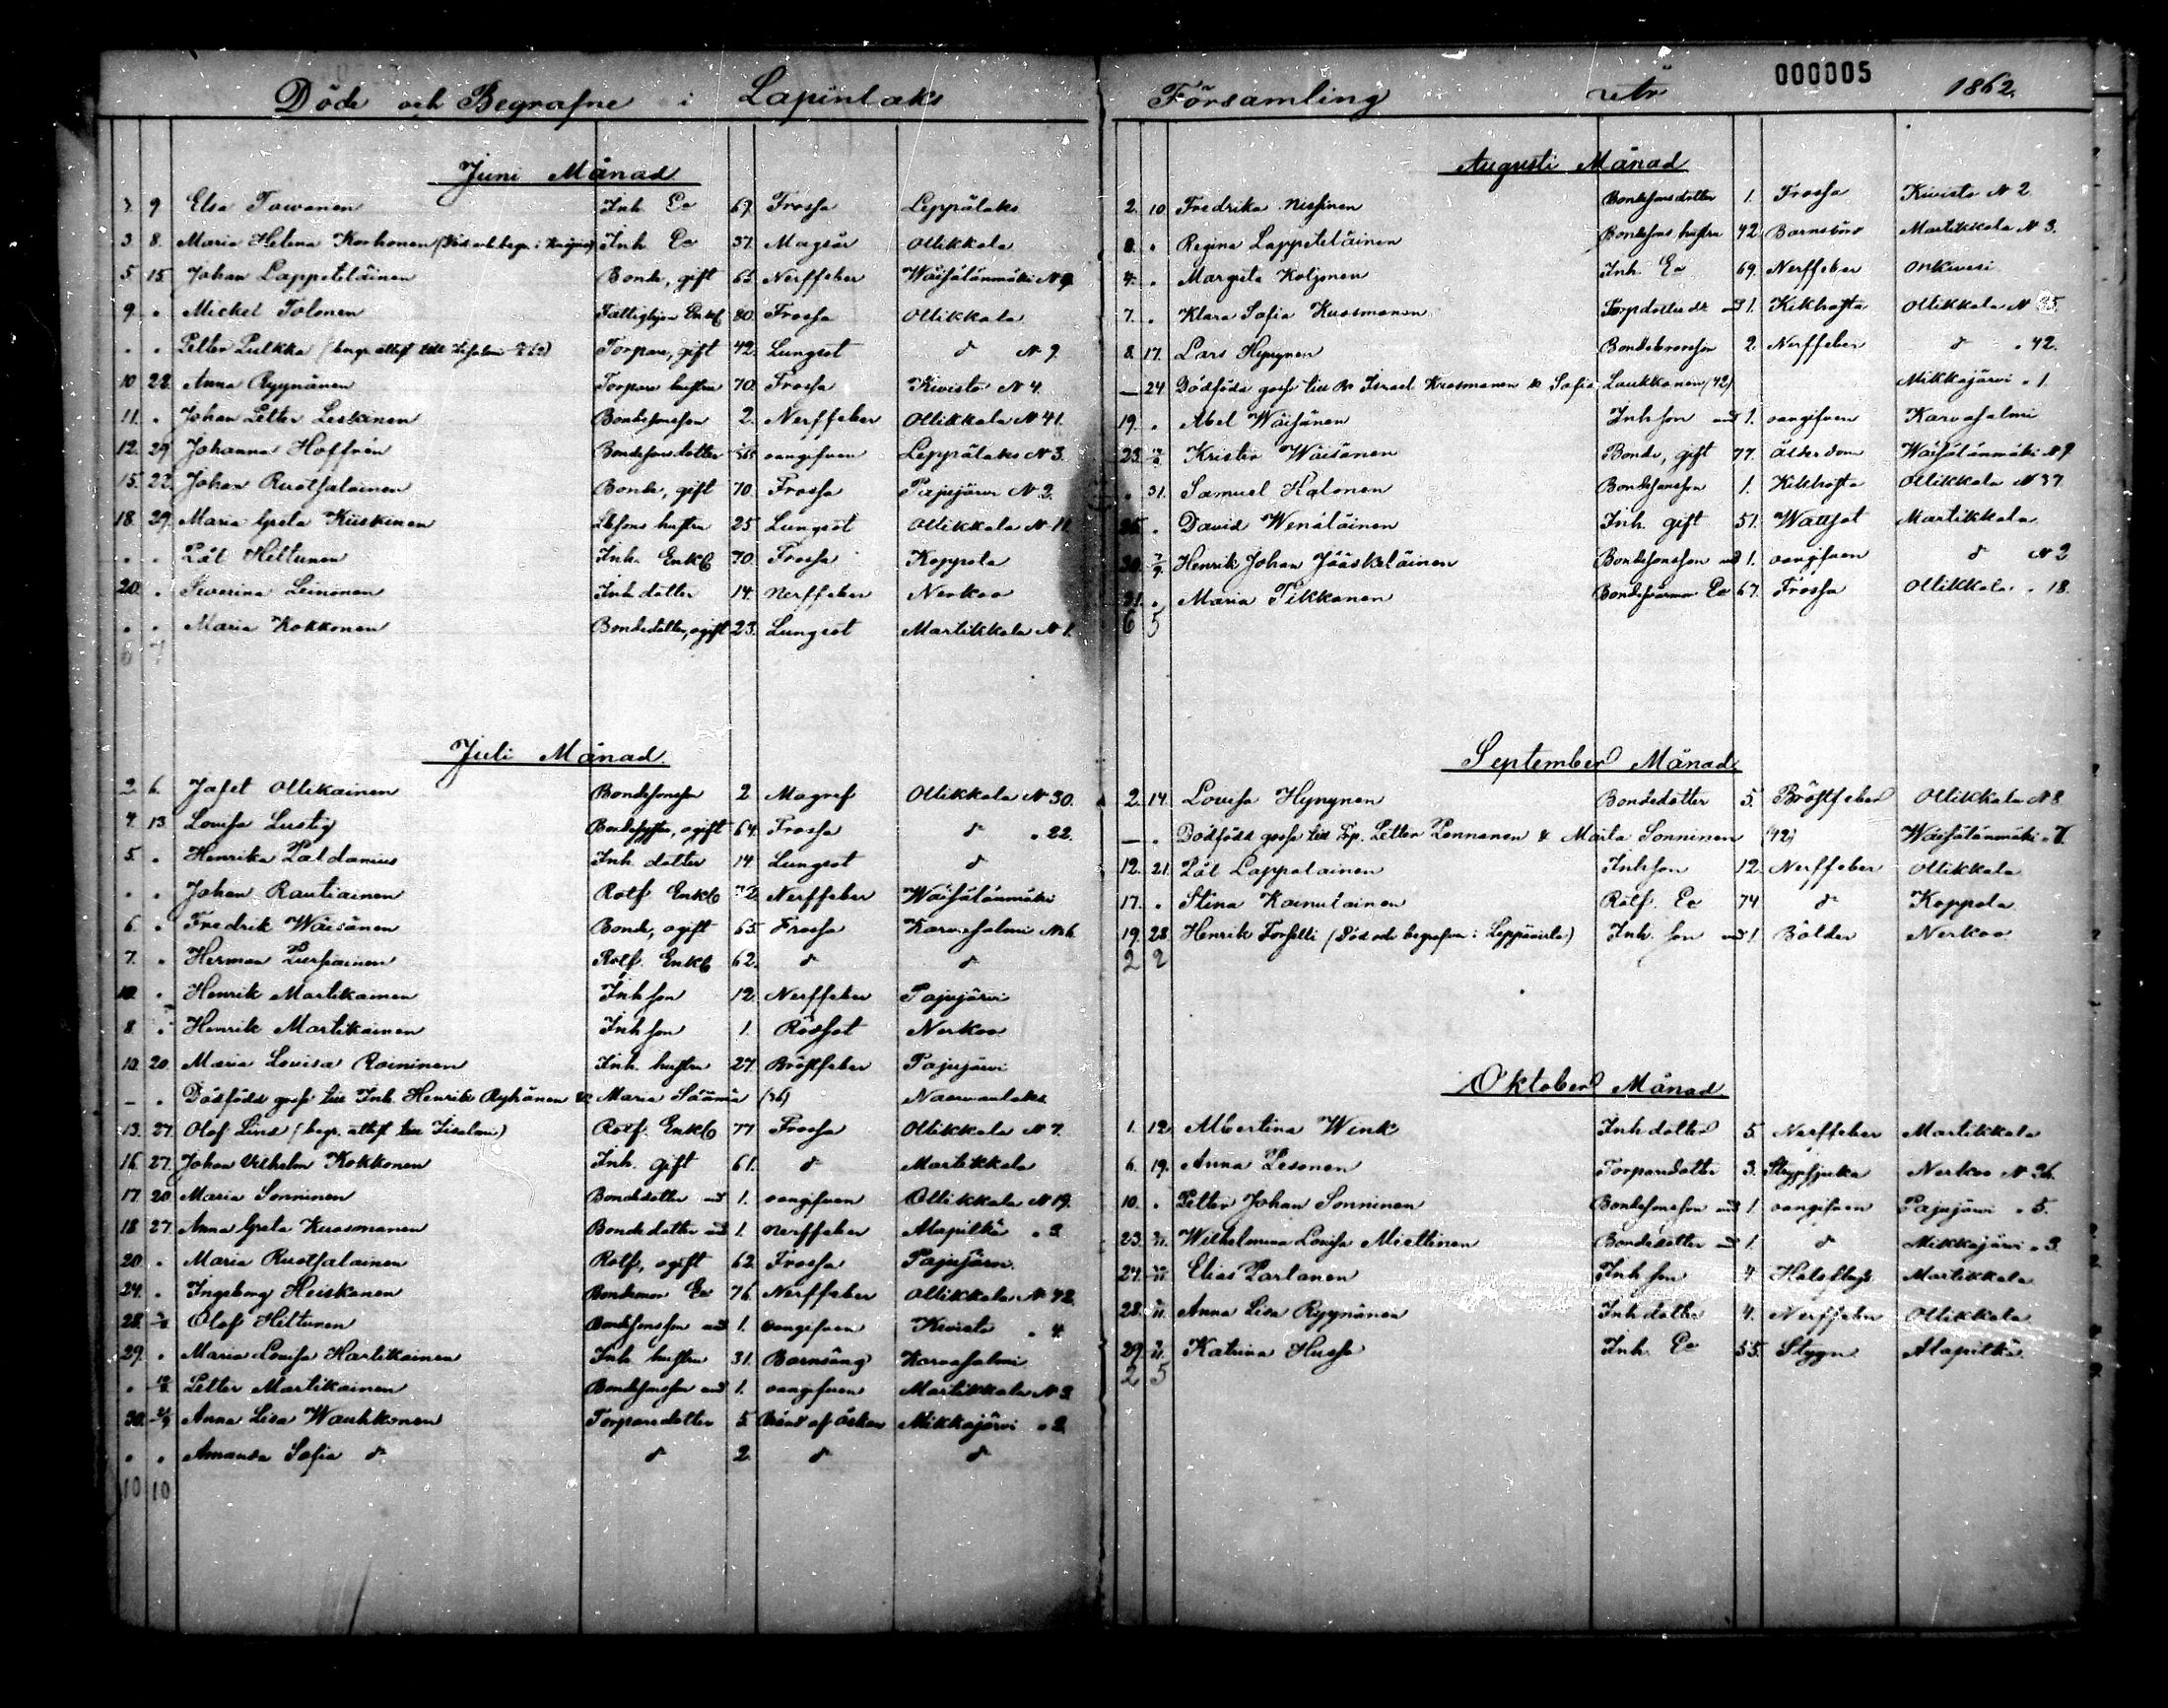 Döde och Begrafne i Lapinlaks
Juni Månad
3. 9 Elsa Tawanen Inh. Ea 69. Frossa Leppälaks
3. 8. Maria Helena Korhonen Inh. Ea 37. Magsår Ollikkala
5. 15. Johan Lappeteläinen Bonde, gift 65. Nerffeber Wäisälänmäki N 9
9. " Mickel Tolonen Enkl 80. Frossa Ollikkala
" " Petter Pulkka Torpare, gift 42. Lungsot d N 9.
10. 22. Anna Ryynänen Torpare hustru 70. Frossa Kivisto N 4.
11. " Johan Petter Leskinen Bondesonson 2. Nerffeber Ollikkala N 41.
12. 29 Johanna Hoffrén Bondesonsdotter oangifven Leppälaks N 3.
15. 22. Johan Ruotsalainen Bonde, gift 70. Frossa Pajujärvi N 2.
18. 29. Maria Greta Kiiskinen hustru 25. Lungsot Ollikkala N 11.
" " Pål Hiltunen Inh. Enkl 70. Frossa Koppola
20. " Severina Leinonen Inh dotter 14. Nerffeber Nerkoo
" " Maria Kokkonen Bondedotter, ogift 23. Lungsot Martikkala N 1.
6 7
Juli Månad.
2. 6. Jafet Ollikainen Bondesonson 2 Magref Ollikkala N 30.
4. 13. Lovisa Lustig ogift 64. Frossa d " 22.
5. " Henrika Paldanius Inh. dotter 14. Lungsot d
" " Johan Rautiainen Rotf. Enkl 72 Nerffeber Wäisälänmäki
6. " Fredrik Wäisänen Bonde, ogift 65. Frossa Karvasalmi N 6.
7. " Herman Purhainen Rotf. Enkl 62. d d
10. " Henrik Martikainen Inh son 12. Nerffeber Pajujärvi
8. " Henrik Martikainen Inh son 1. Rödsot Nerkoo
10. 20. Maria Lovisa Roininen Inh. hustru 27. Bröstfeber Pajujärvi
— " Dödfödde gosse till Inh. Henrik Ryhänen & Maria Säämä (36) Naarvanlaks
13. 27. Olof Lind (begr. attest till Iisalmi) Rotf. Enkl 77 Frossa Ollikkala N 7.
16. 27. Johan Vilhelm Kokkonen Inh. gift 61. d Martikkala
17. 20 Maria Sonninen Bondedotter und 1. oangifven Ollikkala N 19.
18. 27. Anna Greta Kuosmanen Bondedotter und 1. Nerffeber Alapitkä " 3.
20. " Maria Ruotsalainen Rotf., ogift 62. Frossa Pajujärvi
24. " Ingeborg Heiskanen Bondemor Ea 76. Nerffeber Ollikkala N 42.
28. Olof Hiltunen Bondesonson und 1. oangifven Kivisto " 4.
29. " Maria Lovisa Hartikainen Inh. hustru 31. Barnsäng Karvasalmi
" Petter Martikainen Bondesonson und 1. oangifven Martikkala N 3.
30. Anna Lisa Wauhkonen Torparedotter 5. Bränd af åskan Mikkajärvi " 2.
" " Amanda Sofia d d 2. d d
10 10
Församling År 000005 1862.
Augusti Månad
2. 10. Fredrika Nissinen Bondesonsdotter 1. Frossa Kivisto N 2
" Regina Lappeteläinen Bondesons hustru 42. Barnsbörd Martikkala N 3.
4. " Margeta Koljonen Inh. Ea 69. Nerffeber Onkivesi
7. " Klara Sofia Kuosmanen und 1. Kikhosta Ollikkala N
8. 17. Lars Hynynen Bondebrorson 2. Nerffeber d " 42.
— 24. Dödfödde gosse till Israel Kuosmanen & Sofia Laukkanen (42) Mikkajärvi " 1.
19. " Abel Wäisänen Inh son und 1. oangifven Karvasalmi
23. Krister Wäisänen Bonde, gift 77. Ålderdom Wäisälänmäki N 9
" 31. Samuel Halonen Bondesonson 1. Kikhosta Ollikkala N 37
" David Wenäläinen Inh. gift 51. Wattsot Martikkala
30. 7/9. Henrik Johan Jääskeläinen Bondesonson und 1. oangifven d N 2
31. " Maria Tikkanen Ea 67. Frossa Ollikkala " 18.
6 5
September Månad
2. 14. Lovisa Hynynen Bondedotter 5. Bröstfeber Ollikkala N 8
— " Dödfödd gosse till Tp. Petter Pennanen & Marta Sonninen (42) Wäisälänmäki "
12. 21. Pål Lappalainen Inh son 12. Nerffeber Ollikkala
17. " Stina Kainulainen Rotf. Ea 74 d Koppola
19. 28. Henrik Forsetti (Död och begrafven i Leppävirta) Inh. son und 1. Bölder Nerkoo
2 2
Oktober Månad
1. 12. Albertina Wink Inh dotter 5. Nerffeber Martikkala
6. 19. Anna Pesonen Torparedotter 3. Strypsjuka Nerkoo N 26.
10. " Petter Johan Sonninen Bondesonson und 1. oangifven Pajujärvi " 5.
23. Wilhelmina Lovisa Miettinen Bondedotter und 1. d Mikkajärvi " 3.
24. Elias Partanen Inh son 4. Martikkala
28. Anna Lisa Ryynänen Inh dotter 4. Nerffeber Ollikkala
29. Katrina Husso Inh. Ea 55. Stygn Alapitkä
2 5